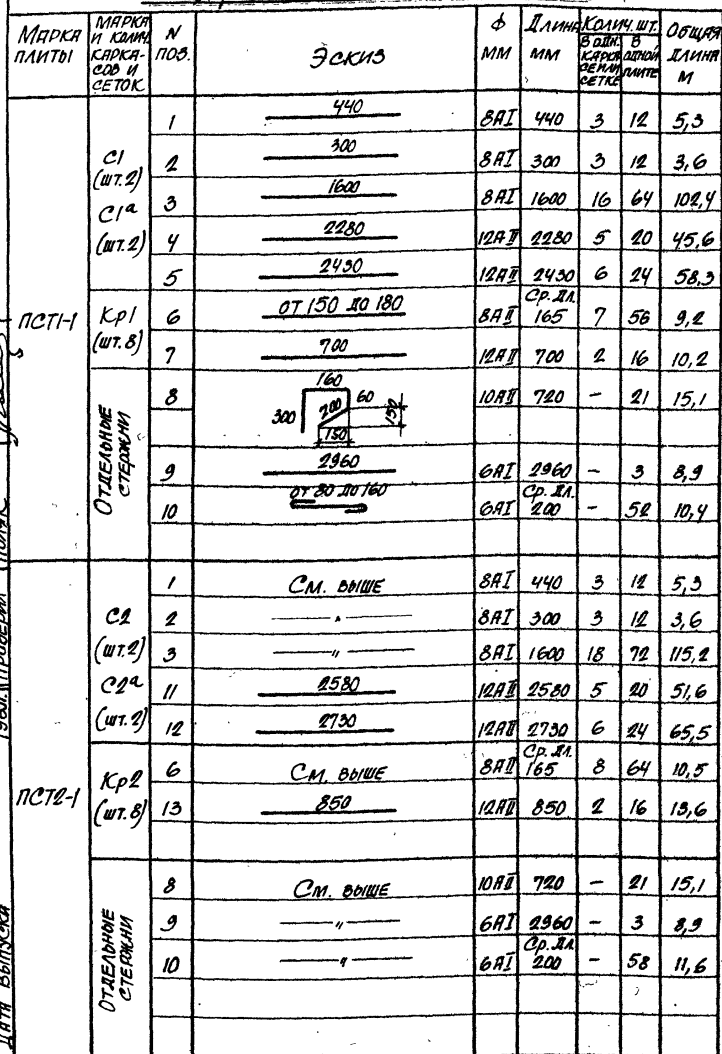 МАРКА ПЛИТЫ | МАРКА И КОЛИЧ. КАРКАСОВ И СЕТОК | N ПОЗ. | ЭСКИЗ | Ф ММ | ДЛИНА ММ | КОЛИЧ. ШТ. В ОДН. КАРКАСЕ ИЛИ СЕТКЕ | В ОДНОЙ ПЛИТЕ | ОБЩАЯ ДЛИНА М
ПСТ1-1
С1 (шт.2) С1а (шт.2)
1 | 440 | 8АI | 440 | 3 | 12 | 5,3
2 | 300 | 8АI | 300 | 3 | 12 | 3,6
3 | 1600 | 8АI | 1600 | 16 | 64 | 102,4
4 | 2280 | 12АII | 2280 | 5 | 20 | 45,6
5 | 2430 | 12АII | 2430 | 6 | 24 | 58,3
Кр1 (шт.8)
6 | ОТ 150 ДО 180 | 8АII | Ср. дл. 165 | 7 | 56 | 9,2
7 | 700 | 12АII | 700 | 2 | 16 | 10,2
ОТДЕЛЬНЫЕ СТЕРЖНИ
8 | 160 300 200 60 150 150 | 10АII | 720 | - | 21 | 15,1
9 | 2960 | 6АI | 2960 | - | 3 | 8,9
10 | ОТ 80 ДО 160 | 6АI | Ср. дл. 200 | - | 52 | 10,4
ПСТ2-1
С2 (шт.2) С2а (шт.2)
1 | См. выше | 8АI | 440 | 3 | 12 | 5,3
2 | — " — | 8АI | 300 | 3 | 12 | 3,6
3 | — " — | 8АI | 1600 | 18 | 72 | 115,2
11 | 2580 | 12АII | 2580 | 5 | 20 | 51,6
12 | 2730 | 12АII | 2730 | 6 | 24 | 65,5
Кр2 (шт.8)
6 | См. выше | 8АII | Ср. дл. 165 | 8 | 64 | 10,5
13 | 850 | 12АII | 850 | 2 | 16 | 13,6
ОТДЕЛЬНЫЕ СТЕРЖНИ
8 | См. выше | 10АII | 720 | - | 21 | 15,1
9 | — " — | 6АI | 2960 | - | 3 | 8,9
10 | — " — | 6АI | Ср. дл. 200 | - | 58 | 11,6
ДАТА ВЫПУСКА
ПРОВЕРИЛ